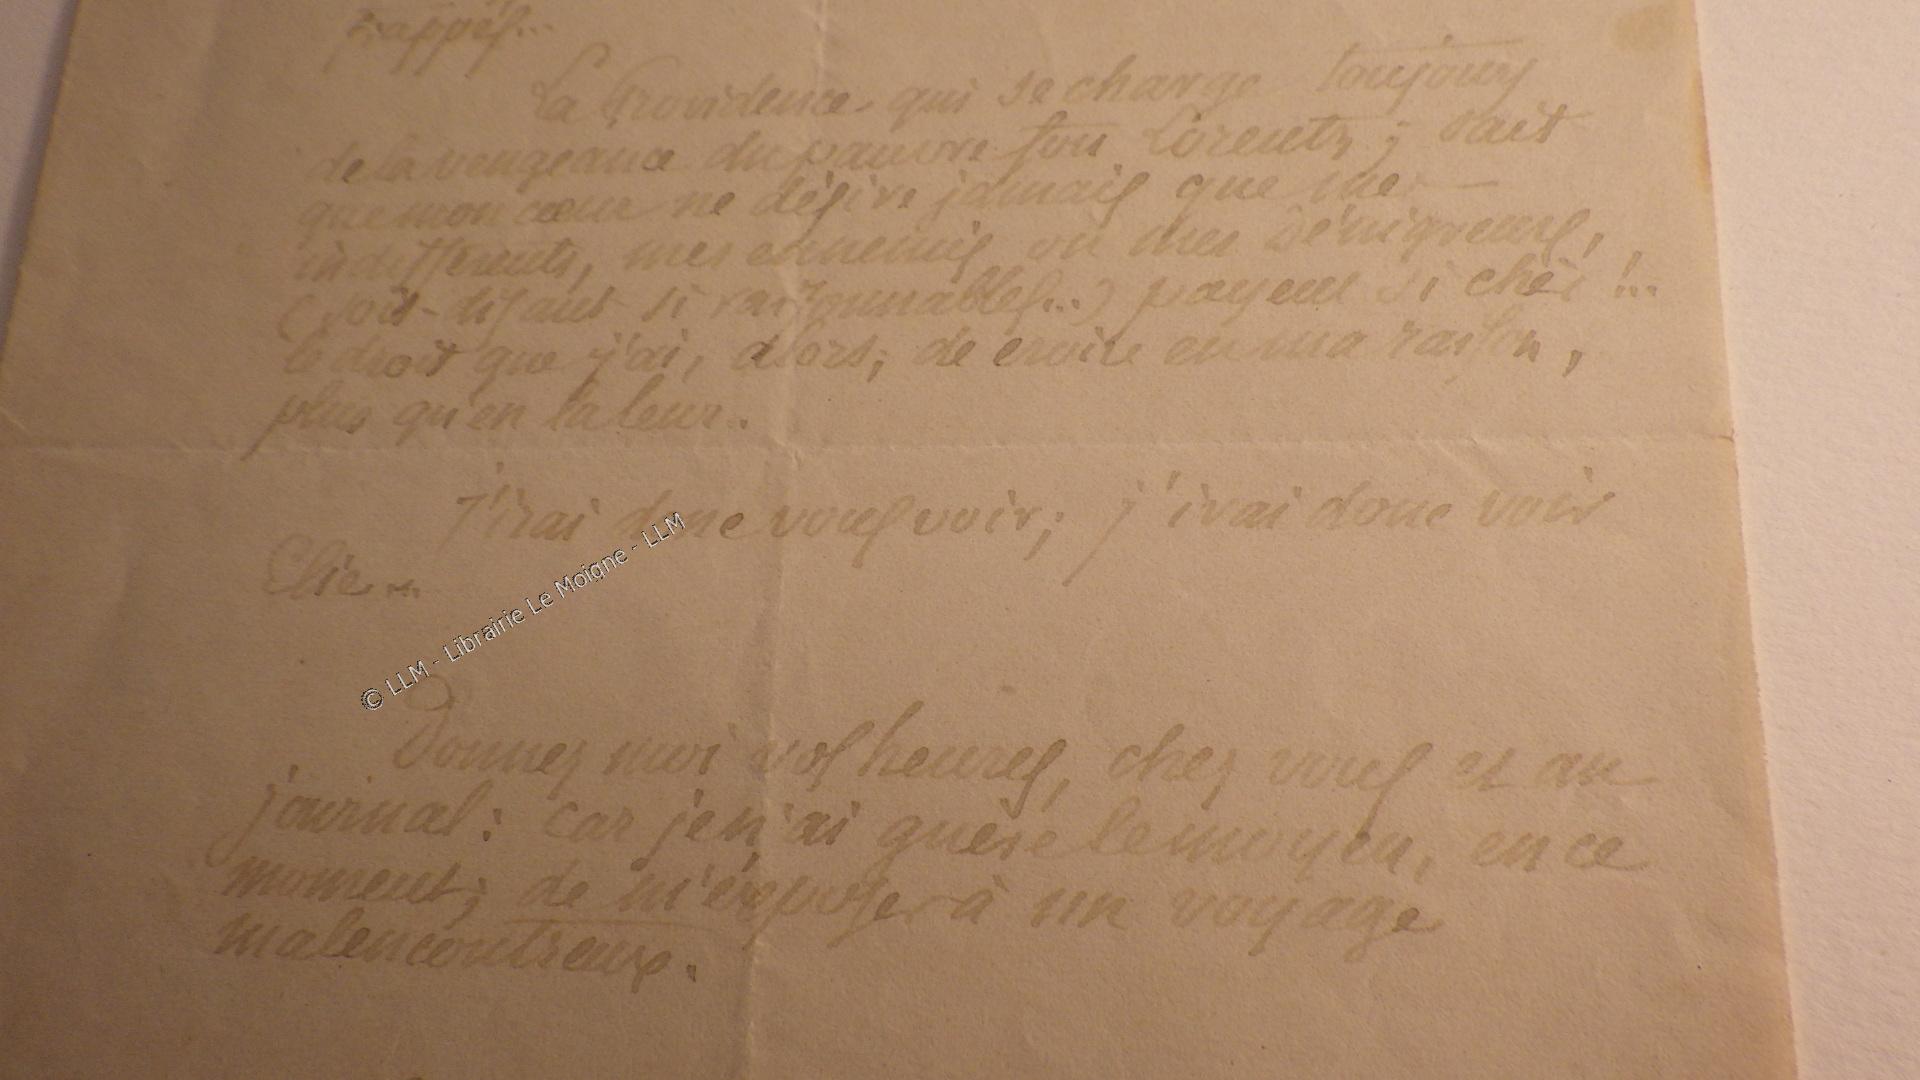 frappés...
La Providence, qui se charge toujours
de la vengeance du pauvre fou Lorentz, sait
que mon cœur ne désire jamais que mes
indifférents, mes ennemis ou mes dénigreurs,
(soit-disant si raisonnables...) payent si cher !..
le droit que j'ai, alors, de croire en ma raison,
plus qu'en la leur..
J'irai donc vous voir; j'irai donc voir
Elie...
© LLM - Librairie Le Moigne - LLM
Donnez moi vos heures, chez vous et au
journal: car je n'ai guère le moyen, en ce
moment, de m'exposer à un voyage
malencontreux.